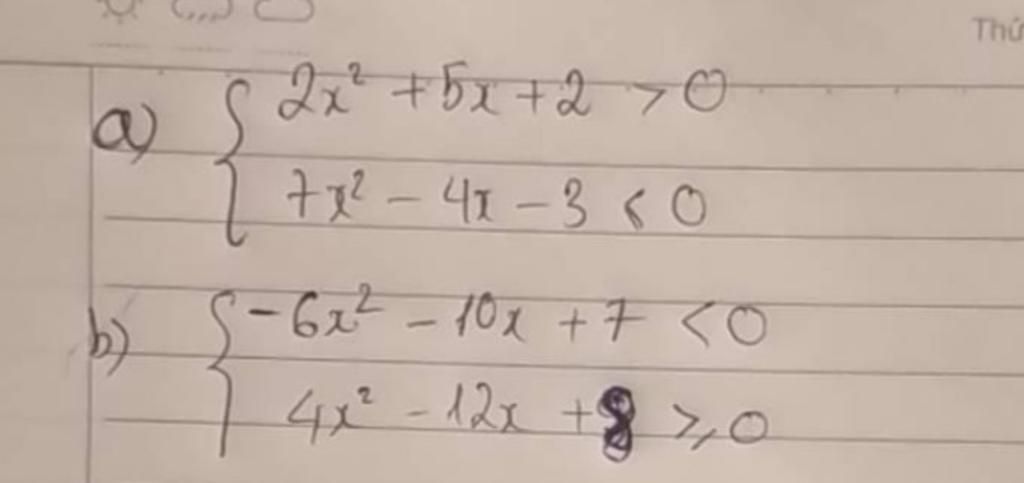 Thứ
a) { 2x² + 5x + 2 > 0
7x² - 4x - 3 < 0
b) { -6x² - 10x + 7 < 0
4x² - 12x + 8 ≥ 0